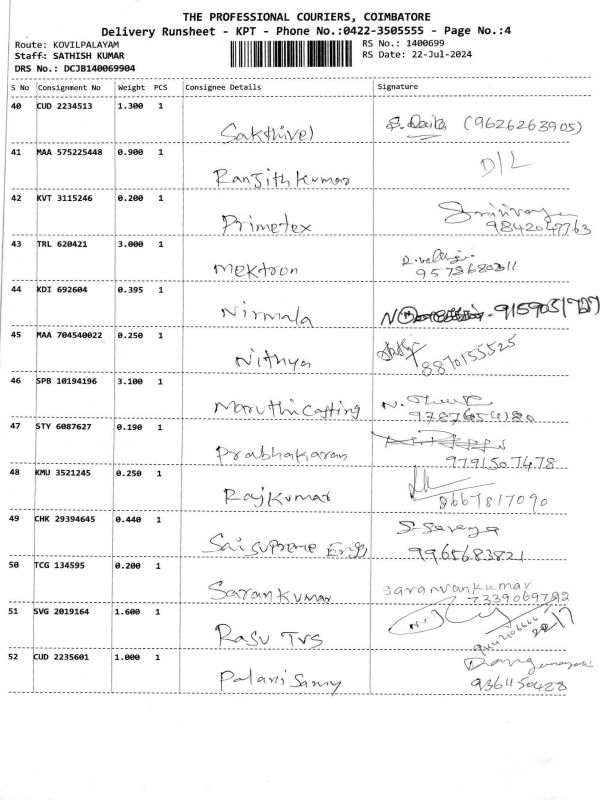 THE PROFESSIONAL COURIERS, COIMBATORE
Delivery Runsheet - KPT - Phone No.:0422-3505555 - Page No.:4
Route: KOVILPALAYAM
RS No.: 1400699
Staff: SATHISH KUMAR
RS Date: 22-Jul-2024
DRS No.: DCJB140069904
S No Consignment No Weight PCS Consignee Details Signature
40 CUD 2234513 1.300 1
Sakthivel (9626263905)
41 MAA 575225448 0.900 1
D/L
Ranjith Kumar
42 KVT 3115246 0.200 1
Primetex
9842047763
43 TRL 620421 3.000 1
Mektron
9578680311
44 KDI 692604 0.395 1
Nirmala
45 MAA 704540022 0.250 1
Nithya 8870155525
46 SPB 10194196 3.100 1
Maruthi Casting
47 STY 6087627 0.190 1
Prabhakaran
9791507478
48 KMU 3521245 0.250 1
Rajkumar 8667817090
49 CHK 29394645 0.440 1
Sai Supreme Engg
9965683821
50 TCG 134595 0.200 1
Sarankumar
saravankumar
7339069792
51 SVG 2019164 1.600 1
Rasu TVS
52 CUD 2235601 1.000 1
Palanisamy
9361150428